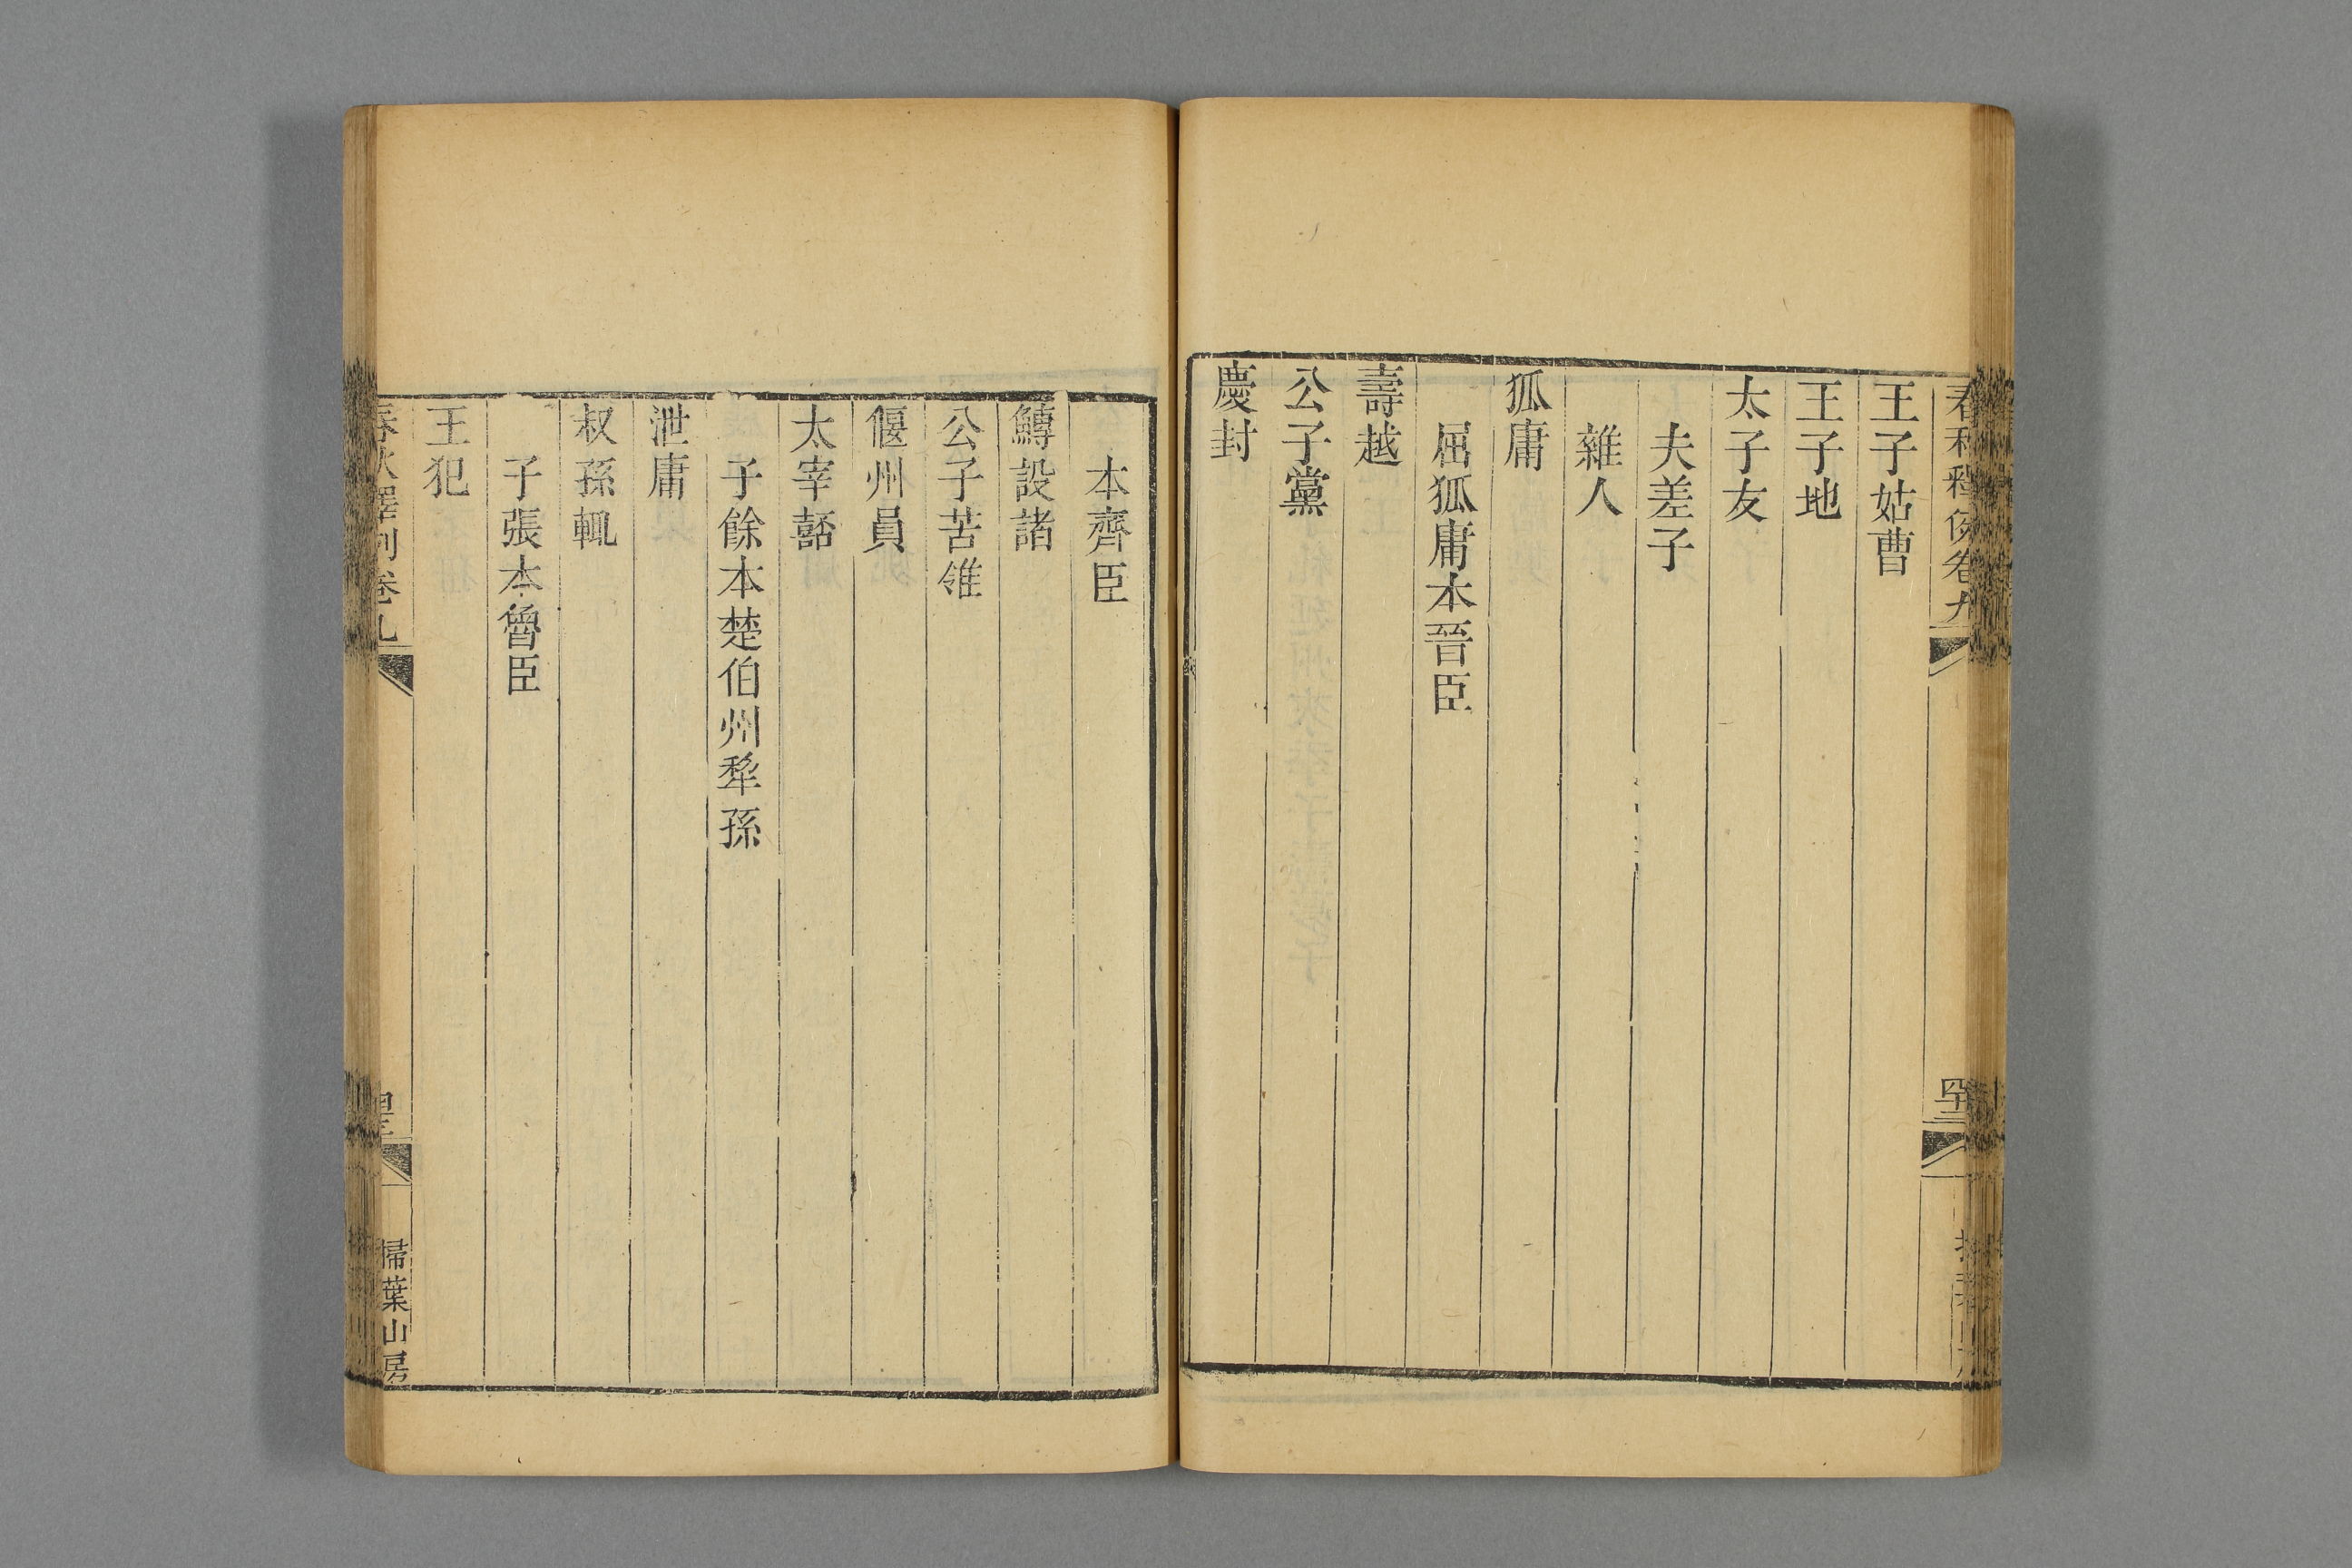 春秋釋例卷九
王子姑曹
王子地
太子友
夫差子
雜人
狐庸
屈狐庸本晉臣
壽越
公子黨
慶封
本齊臣
鱄設諸
公子苦雂
偃州員
太宰嚭
子餘本楚伯州犂孫
泄庸
叔孫輒
子張本魯臣
王犯
春秋釋例卷九
掃葉山房